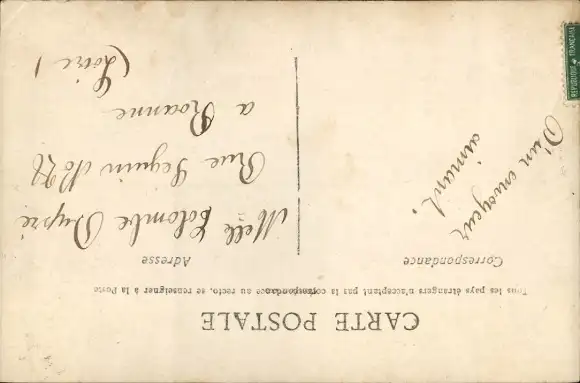 CARTE POSTALE
Tous les pays étrangers n'acceptent pas la correspondance au recto, se renseigner à la Poste
Correspondance
D'un envoyeur
aimant.
Adresse
Melle Colombe Dupré
Rue Seguin No
a Roanne
(Loire)
REPUBLIQUE FRANÇAISE